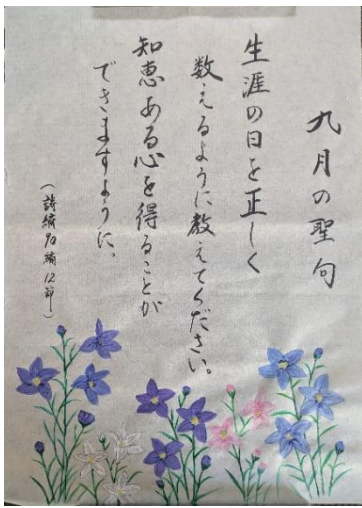 九月の聖句
生涯の日を正しく
数えるように教えてください。
知恵ある心を得ることが
できますように。
(詩編90編12節)